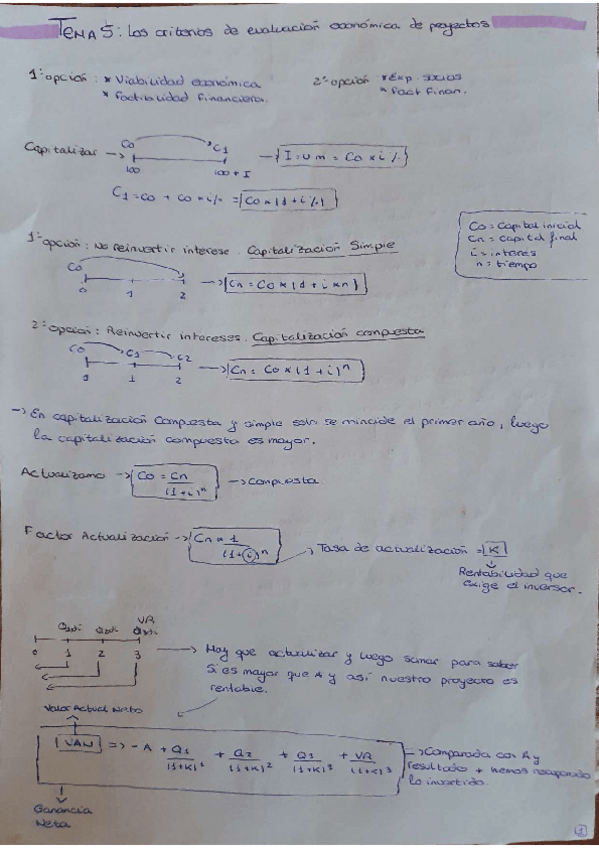 TEMA 5: Los criterios de evaluación económica de proyectos
1ª opción: * Viabilidad económica
* Factibilidad financiera.
2ª opción: * Exp. socios
* Fact finan.
Capitalizar → Co C1 → I = = Co × i %
100 100 + I
C1 = Co + Co × i% = Co × (1 + i%)
Co = Capital inicial
Cn = capital final
i = interes
n = tiempo
1ª opción: No reinvertir interese. Capitalización Simple
Co
0 1 2 → Cn = Co × (1 + i × n)
2ª opción: Reinvertir intereses. Capitalización compuesta
Co C1 C2
0 1 2 → Cn = Co × (1 + i)ⁿ
→ En capitalización compuesta y simple se el primer año, luego
la capitalización compuesta es mayor.
Actualizamo → Co = Cn / (1+i)ⁿ → Compuesta
Factor Actualización → Cn × 1 / (1+i)ⁿ
→ Tasa de actualización = K
Rentabilidad que
exige el inversor.
VR
0 1 2 3
→ Hay que actualizar y luego sumar para saber
Si es mayor que A y así nuestro proyecto es
rentable.
Valor Actual Neto
VAN => - A + Q1 / (1+K)¹ + Q2 / (1+K)² + Q3 / (1+K)³ + VR / (1+K)³
→ Comparada con A y
resultado + hemos recuperado
lo invertido.
Ganancia
Neta
1